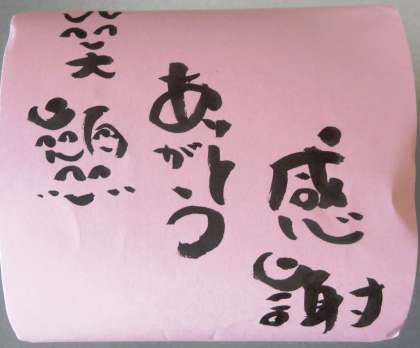 感謝
ありがとう
笑顔